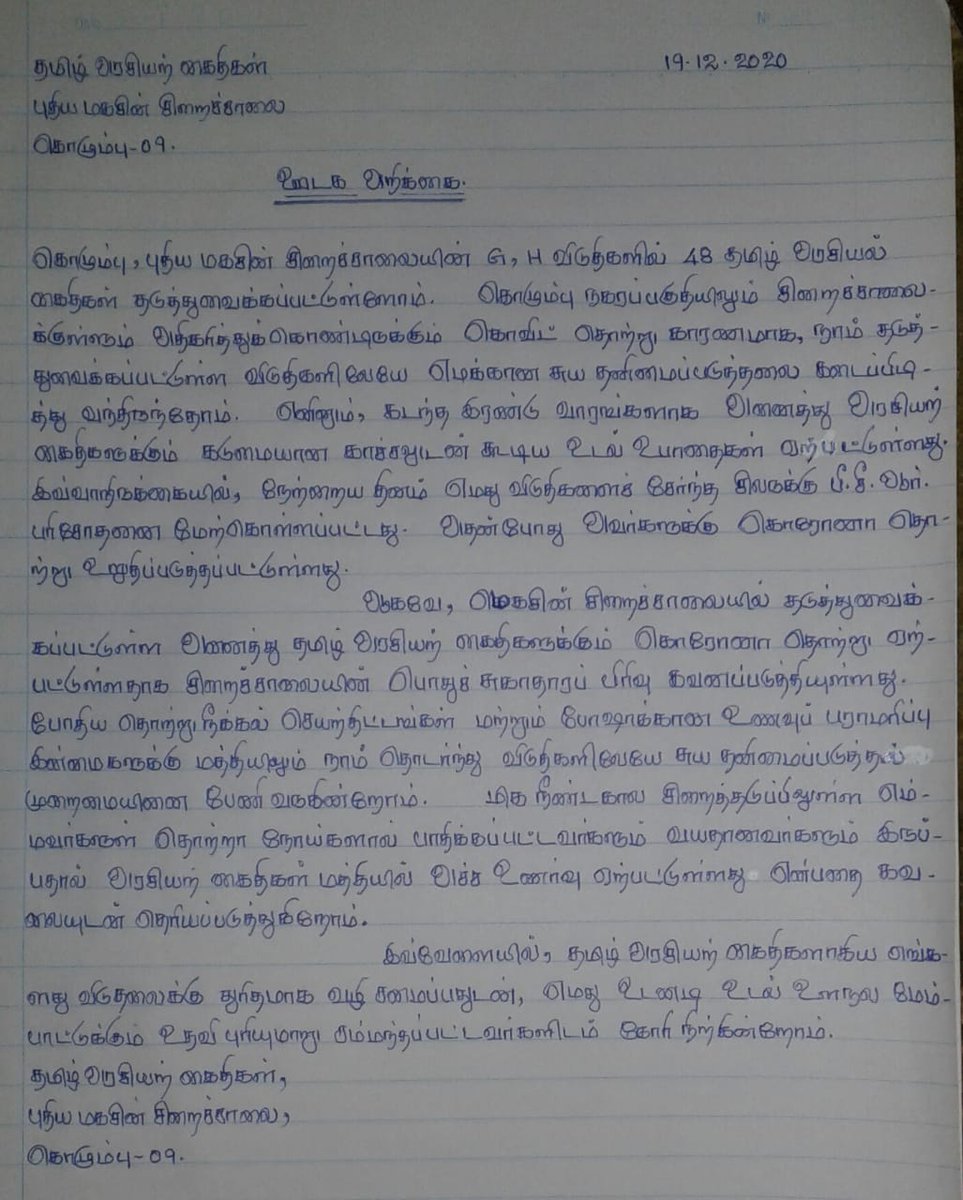 தமிழ் அரசியற் கைதிகள் 19.12.2020
புதிய மகசின் சிறைச்சாலை
கொழும்பு-09.
ஊடக அறிக்கை.
கொழும்பு, புதிய மகசின் சிறைச்சாலையின் G, H விடுதிகளில் 48 தமிழ் அரசியல்
கைதிகள் தடுத்துவைக்கப்பட்டுள்ளோம். கொழும்பு நகரப்பகுதியிலும் சிறைச்சாலை-
க்குள்ளும் அதிகரித்துக்கொண்டிருக்கும் கொவிட் தொற்று காரணமாக, நாம் தடுத்-
துவைக்கப்பட்டுள்ள விடுதிகளிலேயே எமக்கான சுய தனிமைப்படுத்தலை கடைப்பிடி-
த்து வந்திருந்தோம். எனினும், கடந்த இரண்டு வாரங்களாக அனைத்து அரசியற்
கைதிகளுக்கும் கடுமையான காச்சலுடன் கூடிய உடல் உபாதைகள் ஏற்பட்டுள்ளது.
இவ்வாறிருக்கையில், நேற்றைய தினம் எமது விடுதிகளைச் சேர்ந்த சிலருக்கு பீ.சீ.ஆர்.
பரிசோதனை மேற்கொள்ளப்பட்டது. அதன்போது அவர்களுக்கு கொரோனா தொ-
ற்று உறுதிப்படுத்தப்பட்டுள்ளது.
ஆகவே, மகசின் சிறைச்சாலையில் தடுத்துவைக்-
கப்பட்டுள்ள அனைத்து தமிழ் அரசியற் கைதிகளுக்கும் கொரோனா தொற்று ஏற்-
பட்டுள்ளதாக சிறைச்சாலையின் பொதுச் சுகாதாரப் பிரிவு கவனப்படுத்தியுள்ளது.
போதிய தொற்று நீக்கல் செயற்திட்டங்கள் மற்றும் போஷாக்கான உணவுப் பராமரிப்பு
இன்மைகளுக்கு மத்தியிலும் நாம் தொடர்ந்து விடுதிகளிலேயே சுய தனிமைப்படுத்தல்
முறைமையினை பேணி வருகின்றோம். மிக நீண்டகால சிறைத்தடுப்பிலுள்ள எம்-
மவர்களுள் தொற்றா நோய்களால் பாதிக்கப்பட்டவர்களும் வயதானவர்களும் இருப்-
பதால் அரசியற் கைதிகள் மத்தியில் அச்ச உணர்வு ஏற்பட்டுள்ளது என்பதை கவ-
லையுடன் தெரியப்படுத்துகிறோம்.
இவ்வேளையில், தமிழ் அரசியற் கைதிகளாகிய எங்க-
ளது விடுதலைக்கு துரிதமாக வழி சமைப்பதுடன், எமது உடனடி உடல் உளநல மேம்-
பாட்டுக்கும் உதவி புரியுமாறு சம்மந்தப்பட்டவர்களிடம் கோரி நிற்கின்றோம்.
தமிழ் அரசியற் கைதிகள்,
புதிய மகசின் சிறைச்சாலை,
கொழும்பு-09.